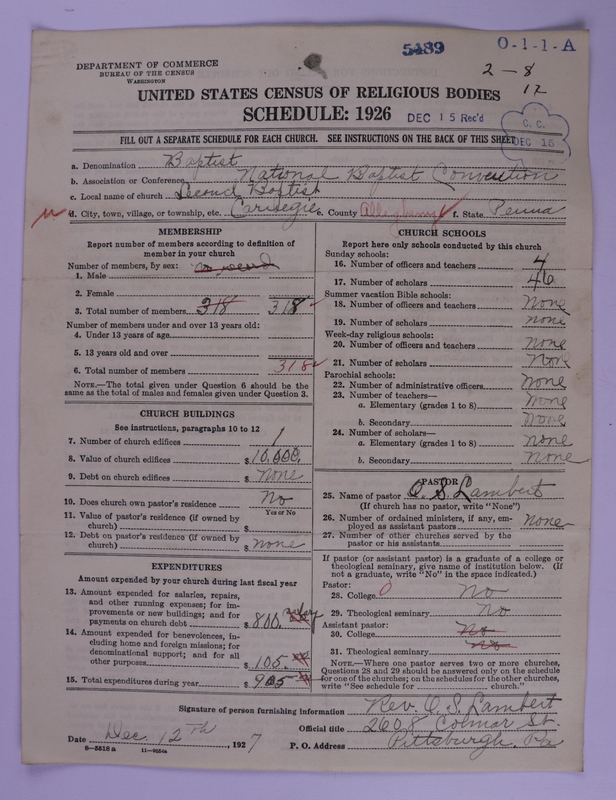 5489
O-1-1-A
DEPARTMENT OF COMMERCE
BUREAU OF THE CENSUS
WASHINGTON
2-8
12
UNITED STATES CENSUS OF RELIGIOUS BODIES
SCHEDULE: 1926
DEC 15 Rec'd
C. C.
DEC 15
FILL OUT A SEPARATE SCHEDULE FOR EACH CHURCH. SEE INSTRUCTIONS ON THE BACK OF THIS SHEET
a. Denomination Baptist
b. Association or Conference National Baptist Convention
c. Local name of church Second Baptist
d. City, town, village, or township, etc. Carnegie e. County Allegheny f. State Penna
MEMBERSHIP
Report number of members according to definition of
member in your church
Number of members, by sex:
1. Male
2. Female
3. Total number of members 318 318
Number of members under and over 13 years old:
4. Under 13 years of age
5. 13 years old and over
6. Total number of members 318
NOTE.—The total given under Question 6 should be the
same as the total of males and females given under Question 3.
CHURCH BUILDINGS
See instructions, paragraphs 10 to 12
7. Number of church edifices 1
8. Value of church edifices $ 10,000.
9. Debt on church edifices $ None
10. Does church own pastor's residence No
Yes or No
11. Value of pastor's residence (if owned by
church) $
12. Debt on pastor's residence (if owned by
church) $ none
EXPENDITURES
Amount expended by your church during last fiscal year
13. Amount expended for salaries, repairs,
and other running expenses; for im-
provements or new buildings; and for
payments on church debt $ 800.
14. Amount expended for benevolences, in-
cluding home and foreign missions; for
denominational support; and for all
other purposes $ 105.
15. Total expenditures during year $ 905
CHURCH SCHOOLS
Report here only schools conducted by this church
Sunday schools:
16. Number of officers and teachers 4
17. Number of scholars 46
Summer vacation Bible schools:
18. Number of officers and teachers None
19. Number of scholars none
Week-day religious schools:
20. Number of officers and teachers None
21. Number of scholars Non
Parochial schools:
22. Number of administrative officers None
23. Number of teachers—
a. Elementary (grades 1 to 8) None
b. Secondary None
24. Number of scholars—
a. Elementary (grades 1 to 8) none
b. Secondary None
PASTOR
25. Name of pastor O. S. Lambert
(If church has no pastor, write "None")
26. Number of ordained ministers, if any, em-
ployed as assistant pastors None
27. Number of other churches served by the
pastor or his assistants
If pastor (or assistant pastor) is a graduate of a college or
theological seminary, give name of institution below. (If
not a graduate, write "No" in the space indicated.)
Pastor:
28. College No
29. Theological seminary No
Assistant pastor:
30. College No
31. Theological seminary No
NOTE.—Where one pastor serves two or more churches,
Questions 28 and 29 should be answered only on the schedule
for one of the churches; on the schedules for the other churches,
write "See schedule for church."
Signature of person furnishing information Rev. O. S. Lambert
Official title 2608 Colmar St.
Date Dec. 12th, 1927 P. O. Address Pittsburgh, Pa
8—5518 a